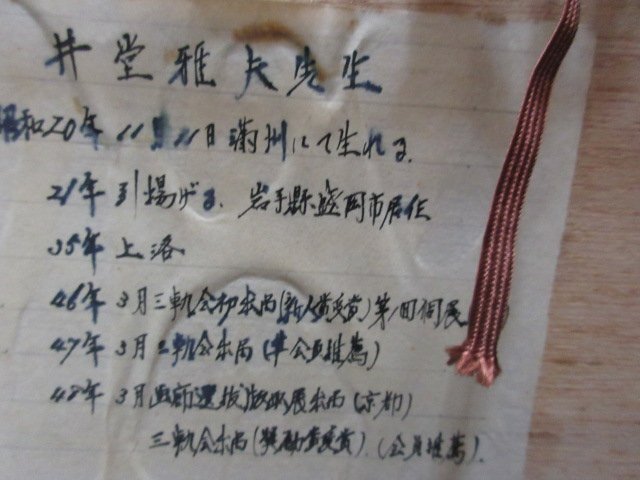 井堂雅夫先生
昭和20年 11月11日満州にて生れる.
21年 引揚げる. 岩手縣盛岡市居住
35年 上洛
46年 3月三軌会初出品(新人賞受賞)第1回個展
47年 3月三軌会出品(準会員推薦)
48年 3月 選抜版画展出品(京都)
三軌会出品(奨励賞受賞).(会員推薦).